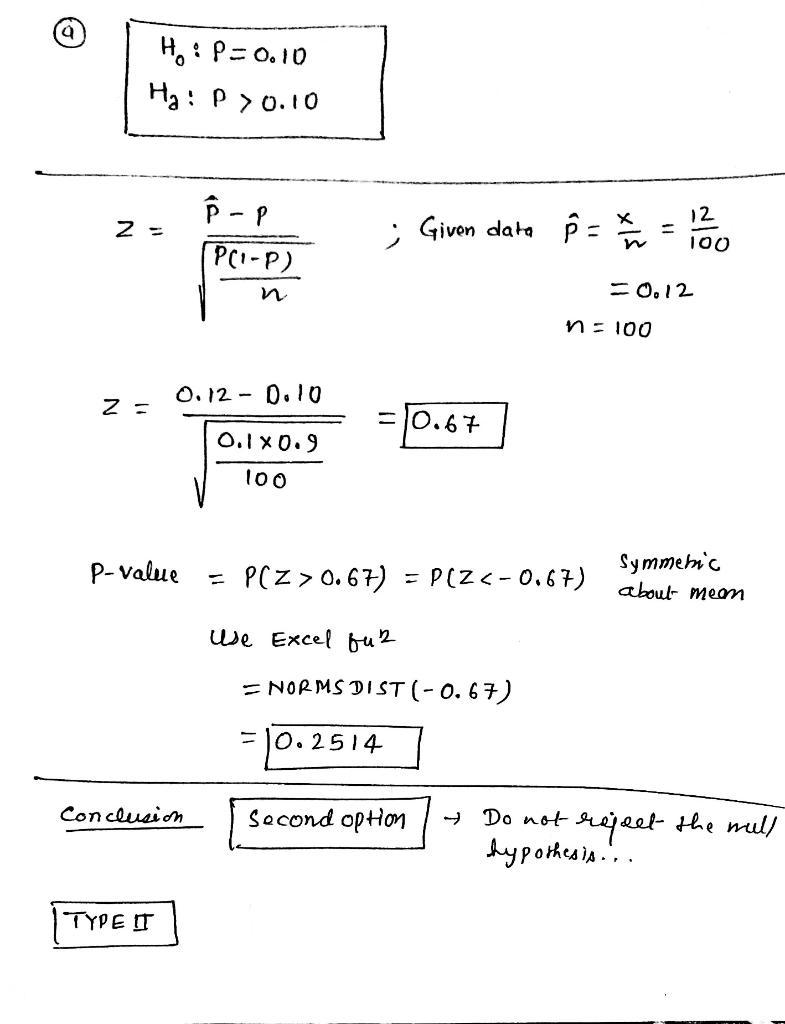 a
H₀ : P = 0.10
Ha : P > 0.10
Z = (p̂ - P) / √(P(1-P)/n) ; Given data p̂ = x/n = 12/100
= 0.12
n = 100
Z = (0.12 - 0.10) / √(0.1 × 0.9/100) = 0.67
P-value = P(Z > 0.67) = P(Z < -0.67) Symmetric about mean
Use Excel fun
= NORMSDIST(-0.67)
= 0.2514
Conclusion Second option → Do not reject the null
hypothesis...
TYPE II